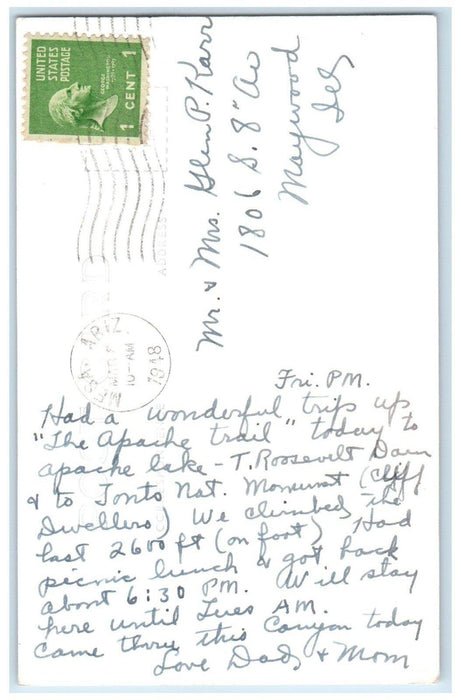 UNITED
STATES
POSTAGE
GEORGE
WASHINGTON
1 CENT 1
MESA, ARIZ.
MAR
10-AM
1948
Mr. & Mrs. Glen P. Karr
1806 S. 8" Av
Maywood
Ill
Fri. P.M.
Had a wonderful trip up
"The Apache trail" today to
apache lake - T. Roosevelt Dam
& to Tonto Nat. Monumat (Cliff
Dwellers) We climbed the
last 2600 ft (on foot) Had
picnic lunch & got back
about 6:30 PM. Will stay
here until Tues AM.
Came thru this Canyon today
Love Dad & Mom